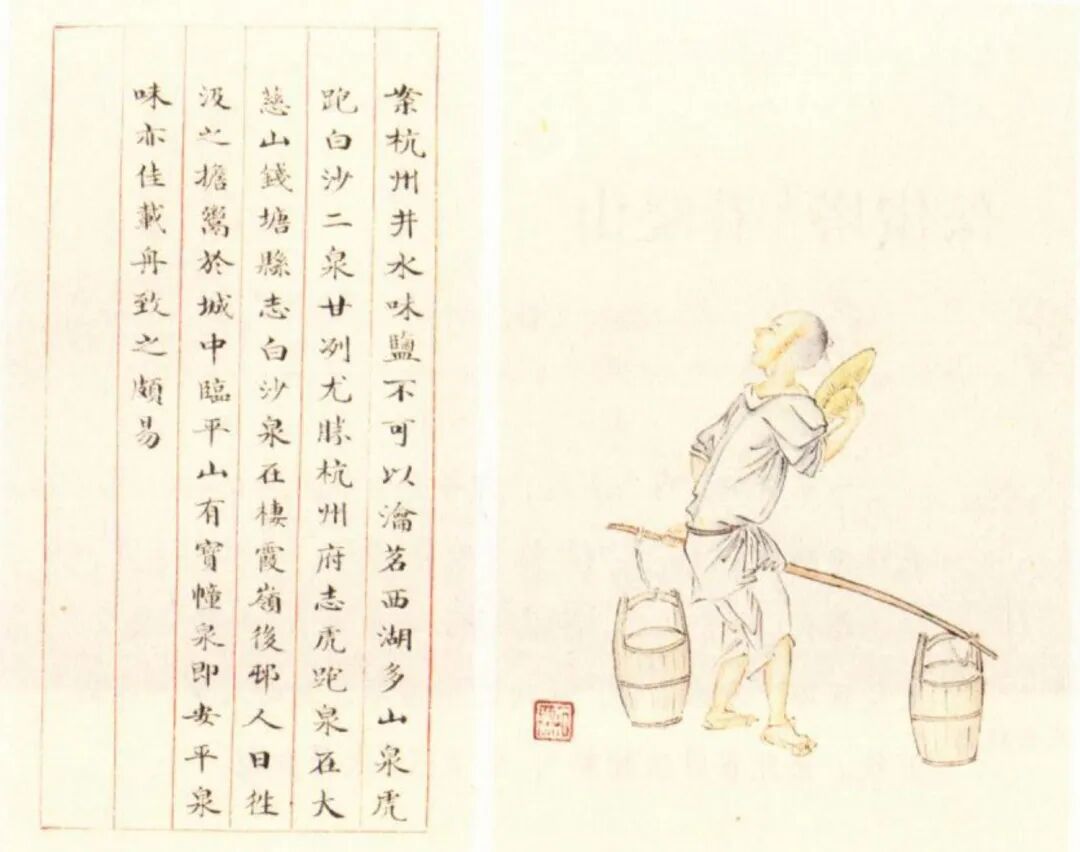 案杭州井水味鹽不可以瀹茗西湖多山泉虎
跑白沙二泉甘冽尤勝杭州府志虎跑泉在大
慈山錢塘縣志白沙泉在棲霞嶺後邨人日往
汲之擔鬻於城中臨平山有寶幢泉即安平泉
味亦佳載舟致之頗易